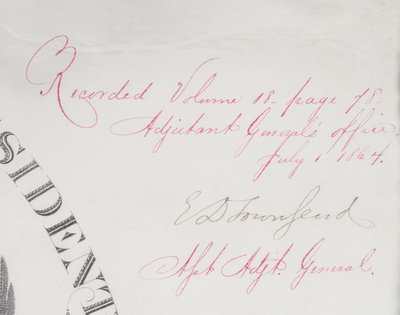 Recorded Volume 18. page 78.
Adjutant General's office,
July 1. 1864.
E D Townsend
Asst Adjt. General.
SIDENT